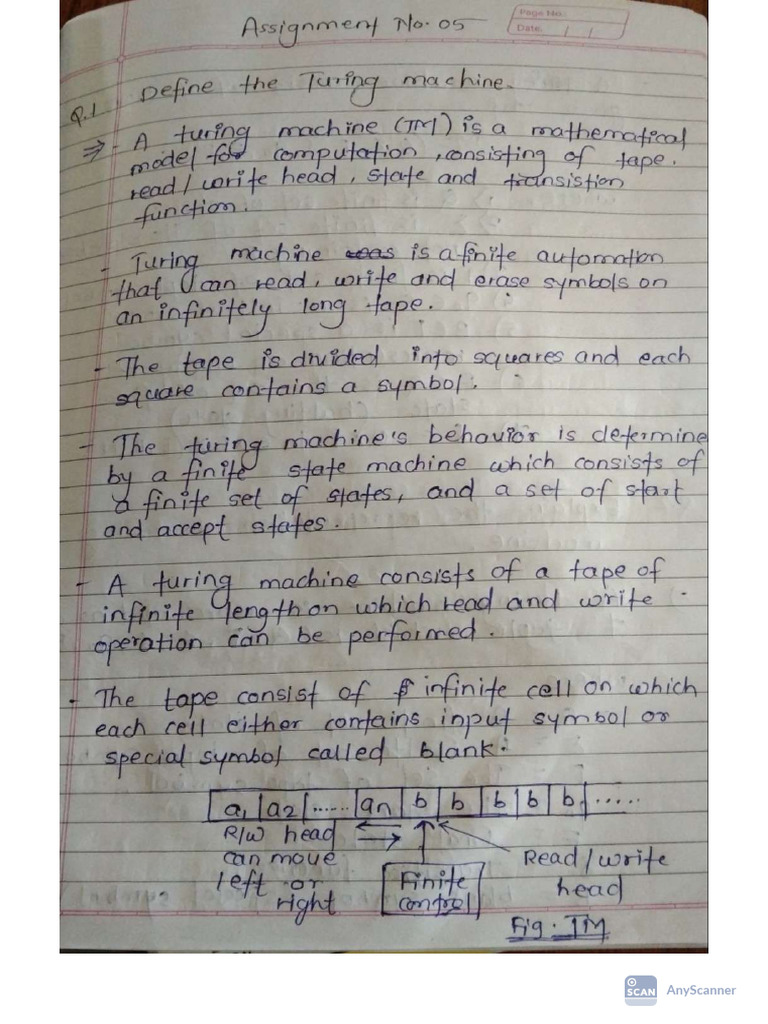 Assignment No. 05
Page No.:
Date: / /
Q.1 Define the Turing machine.
⇒ - A turing machine (TM) is a mathematical
model for computation, consisting of tape.
read/write head, state and transistion
function.
- Turing machine was is a finite automation
that can read, write and erase symbols on
an infinitely long tape.
- The tape is divided into squares and each
square contains a symbol.
- The turing machine's behavior is determine
by a finite state machine which consists of
a finite set of states, and a set of start
and accept states.
- A turing machine consists of a tape of
infinite length on which read and write
operation can be performed.
- The tape consist of infinite cell on which
each cell either contains input symbol or
special symbol called blank.
a1 | a2 | ...... | an | b | b | b | b | b | .....
R/W head
can move
left or
right
Finite
control
Read/write
head
Fig. TM
SCAN AnyScanner